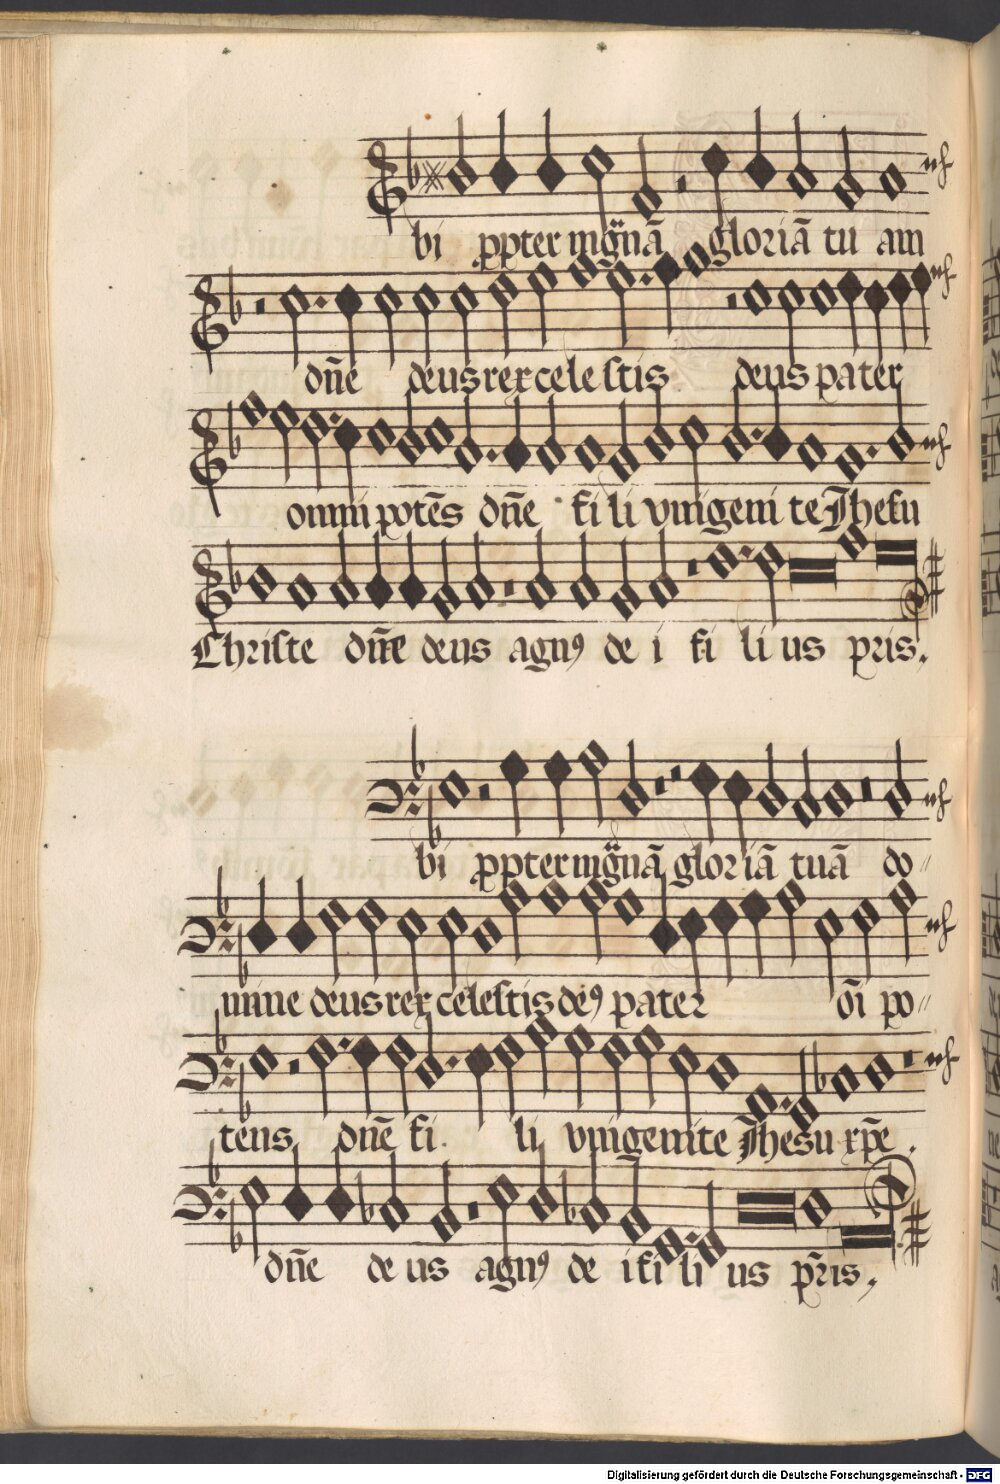 bi ꝓpter mg̈nā gloriā tu am
dñe deus rex celeſtis deus pater
omnipotēs dñe fi li vnigeni te Jheſu
Chriſte dñe deus agnꝰ de i fi li us pris.
bi ꝓpter mg̈nā gloriā tuā do-
mine deus rex celeſtis deꝰ pater oī po-
tens dñe fi li vnigenite Jhesu xp̄e.
dñe de us agnꝰ de i fi li us pr̄is,
Digitalisierung gefördert durch die Deutsche Forschungsgemeinschaft - DFG